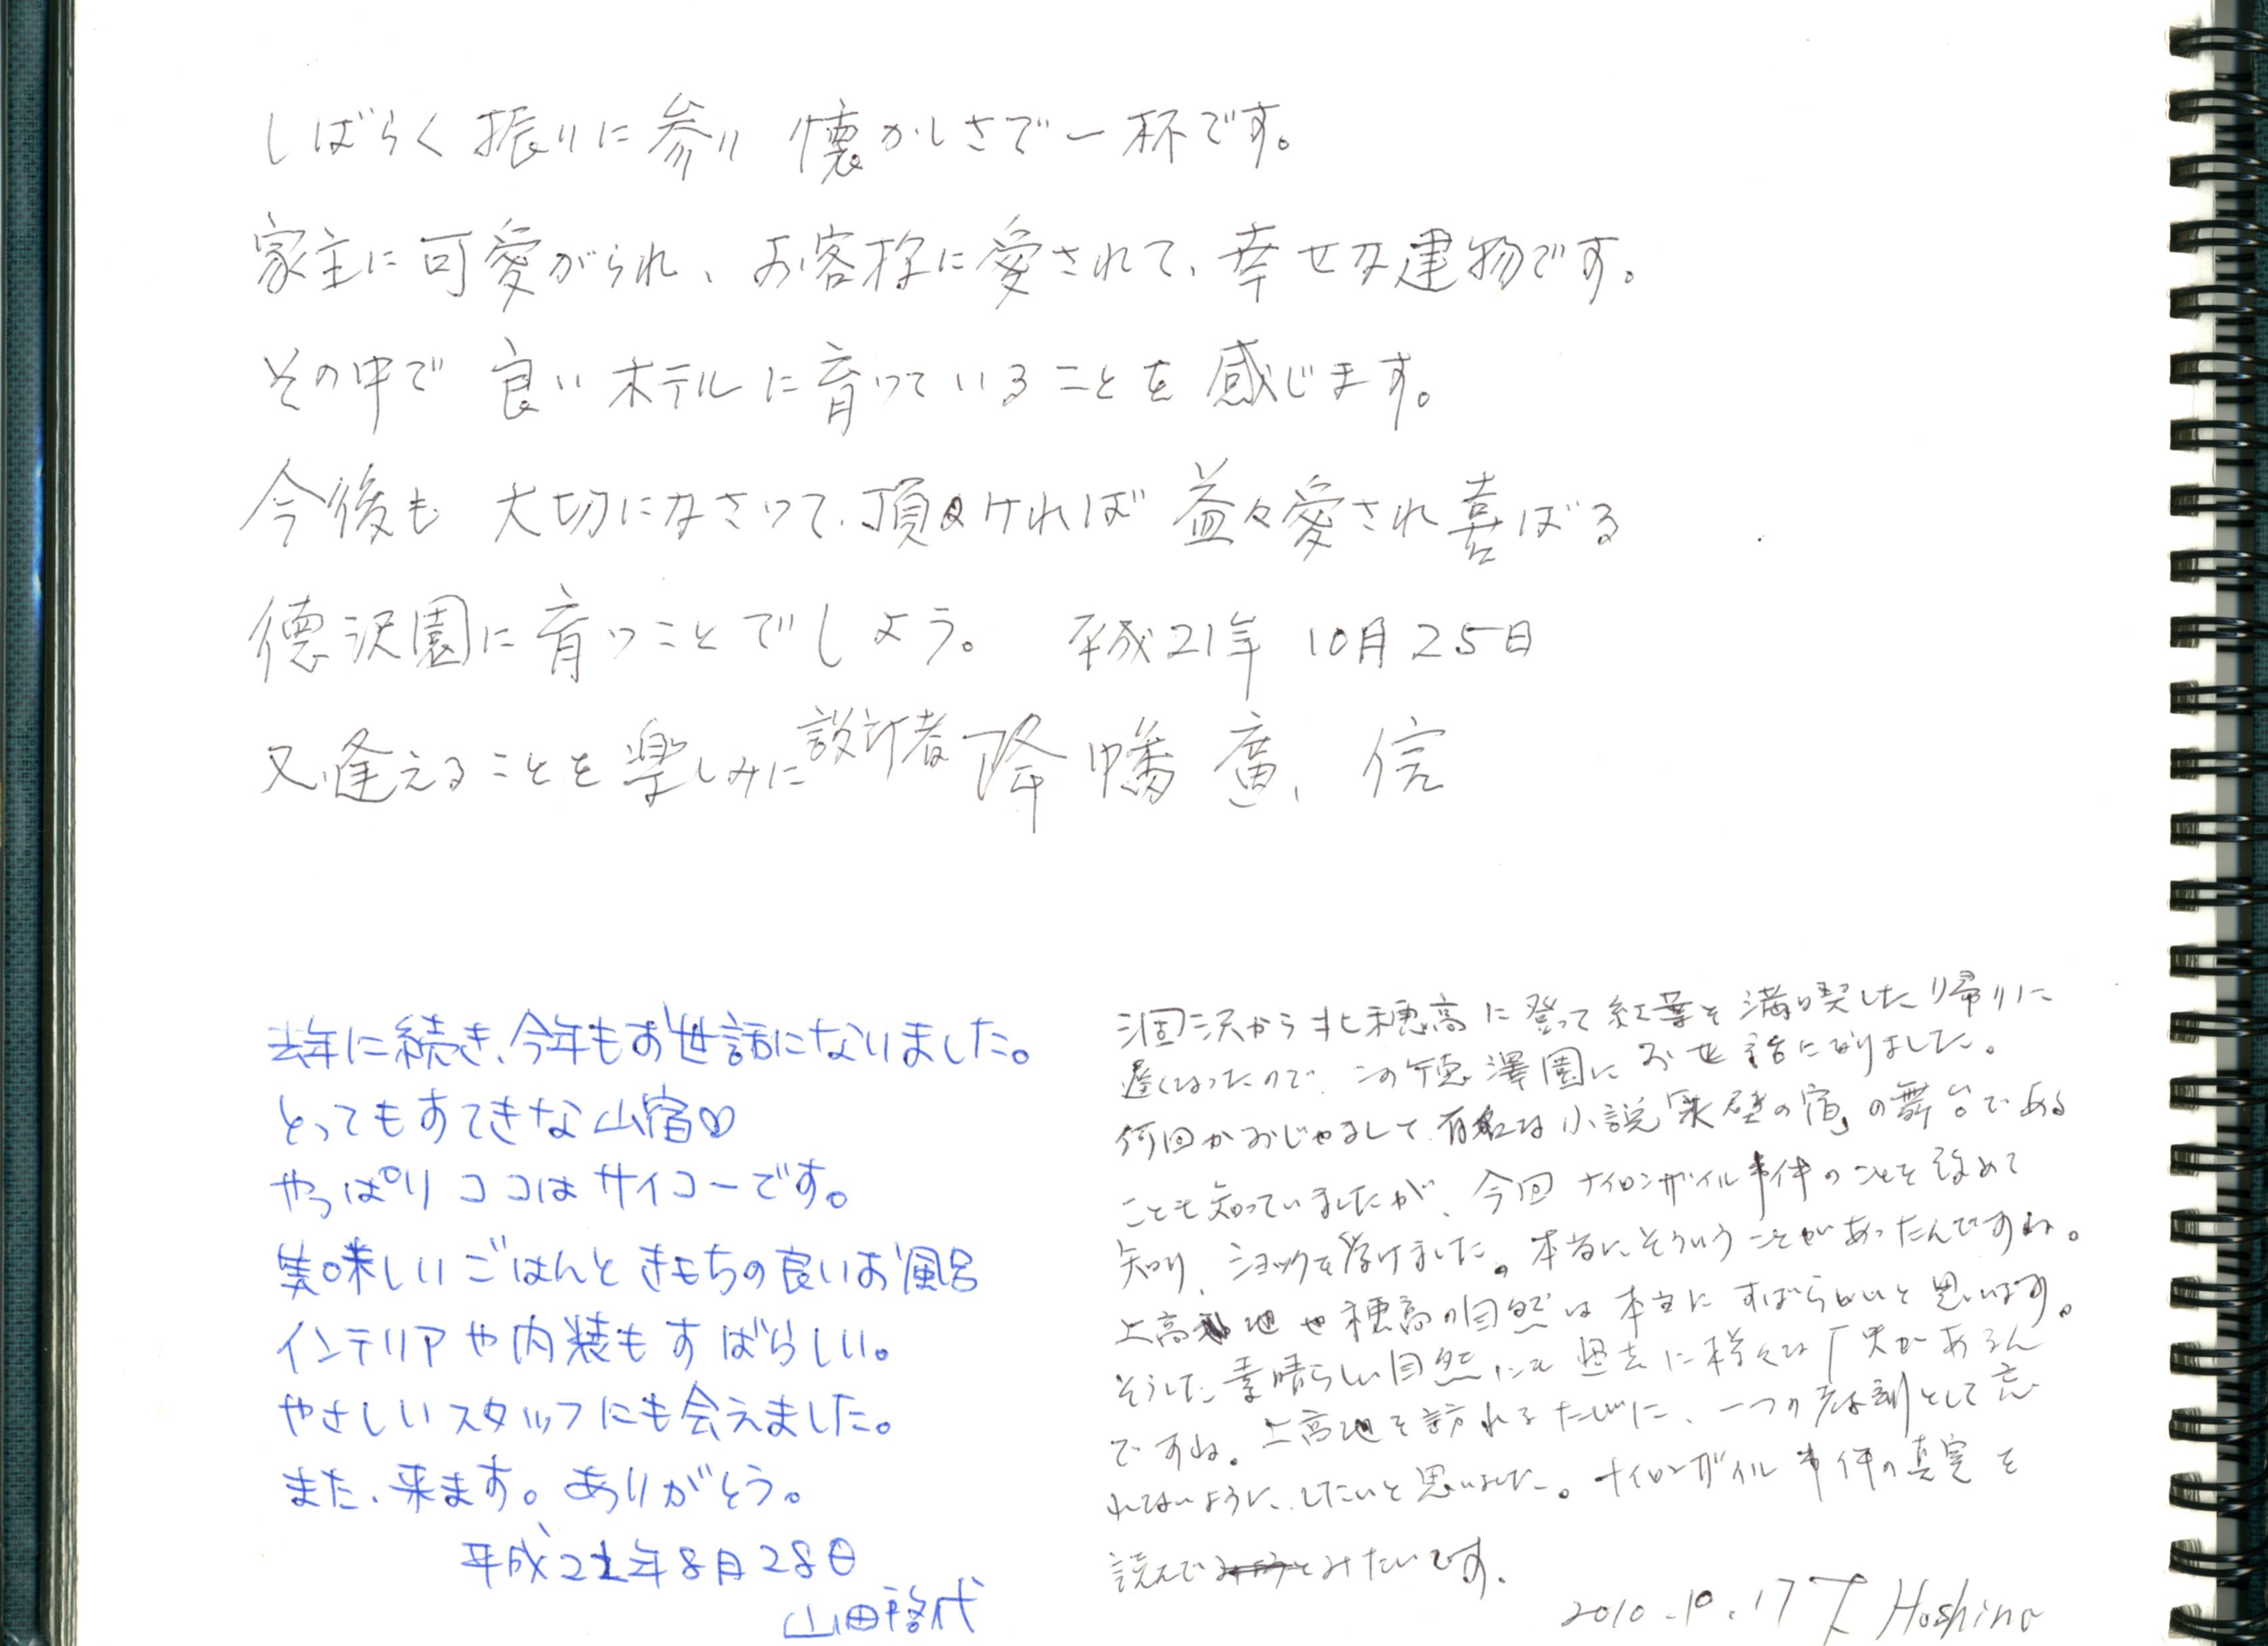 しばらく振りに参り 懐かしさで一杯です。
家主に可愛がられ、お客様に愛されて、幸せな建物です。
その中で 良いホテルに育っていることを感じます。
今後も 大切になさって、頂ければ 益々愛され喜ばる
徳沢園に育つことでしょう。 平成21年 10月25日
又逢えることを楽しみに 設計者 降幡廣信
去年に続き、今年もお世話になりました。
とってもすてきな山宿♡
やっぱり ココは サイコーです。
美味しいごはんと きもちの良いお風呂
インテリアや内装もすばらしい。
やさしいスタッフにも会えました。
また、来ます。ありがとう。
平成21年8月28日
山田啓代
涸沢から北穂高に登って紅葉を満喫した帰りに
遅くなったので、この徳澤園にお世話になりました。
何回かおじゃまして、有名な小説「氷壁の宿」の舞台である
ことも知っていましたが、今回 ナイロンザイル事件のことを改めて
知り、ショックを受けました。本当にそういうことがあったんですね。
上高地や穂高の自然は本当にすばらしいと思います。
そうした素晴らしい自然にも過去に様々な歴史があるん
ですね。上高地を訪れるたびに、一つの として忘
れないように、したいと思いました。ナイロンザイル事件の真実を
読んでみたいです。
2010.10.17 T Hoshino